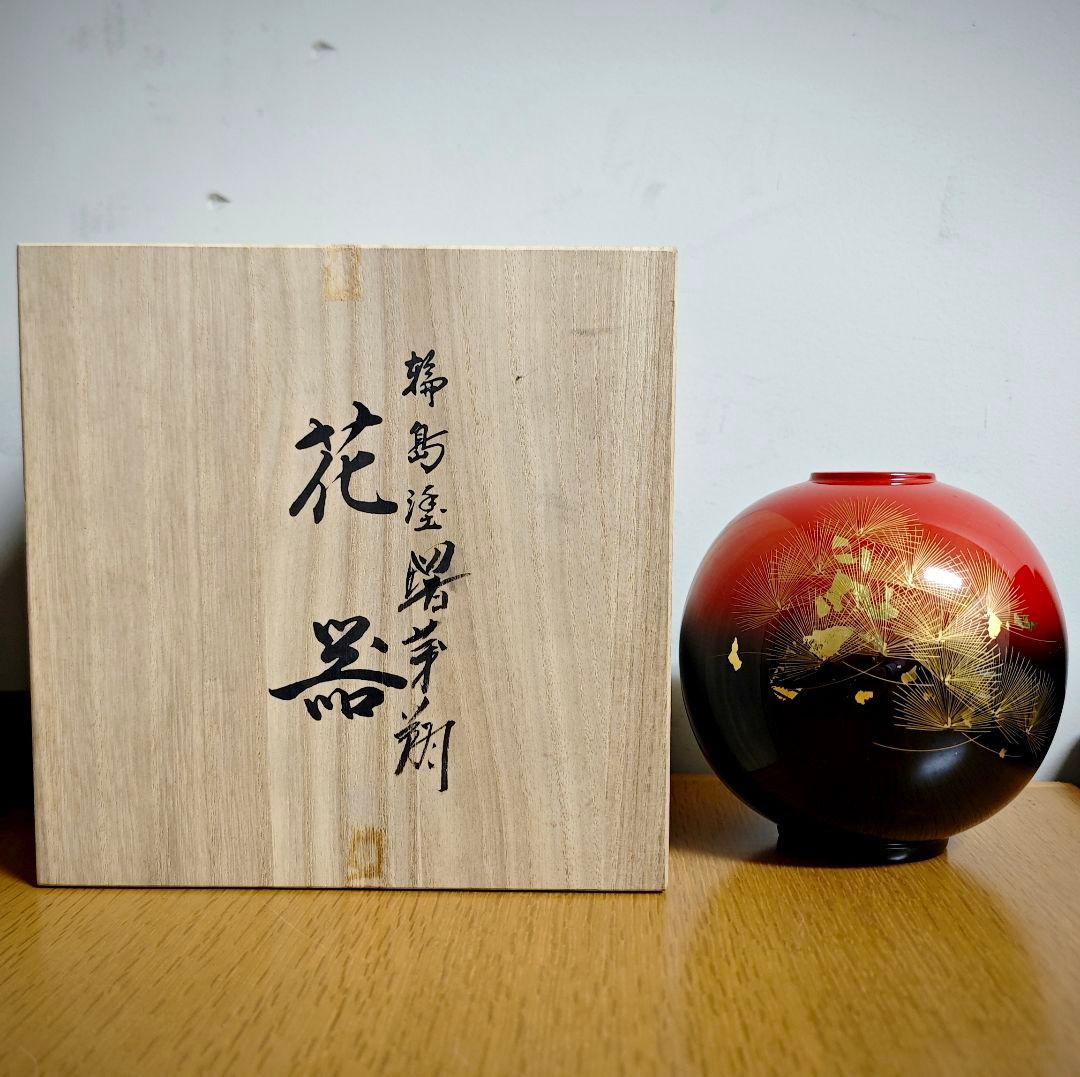 輪島塗曙茅翔
花器